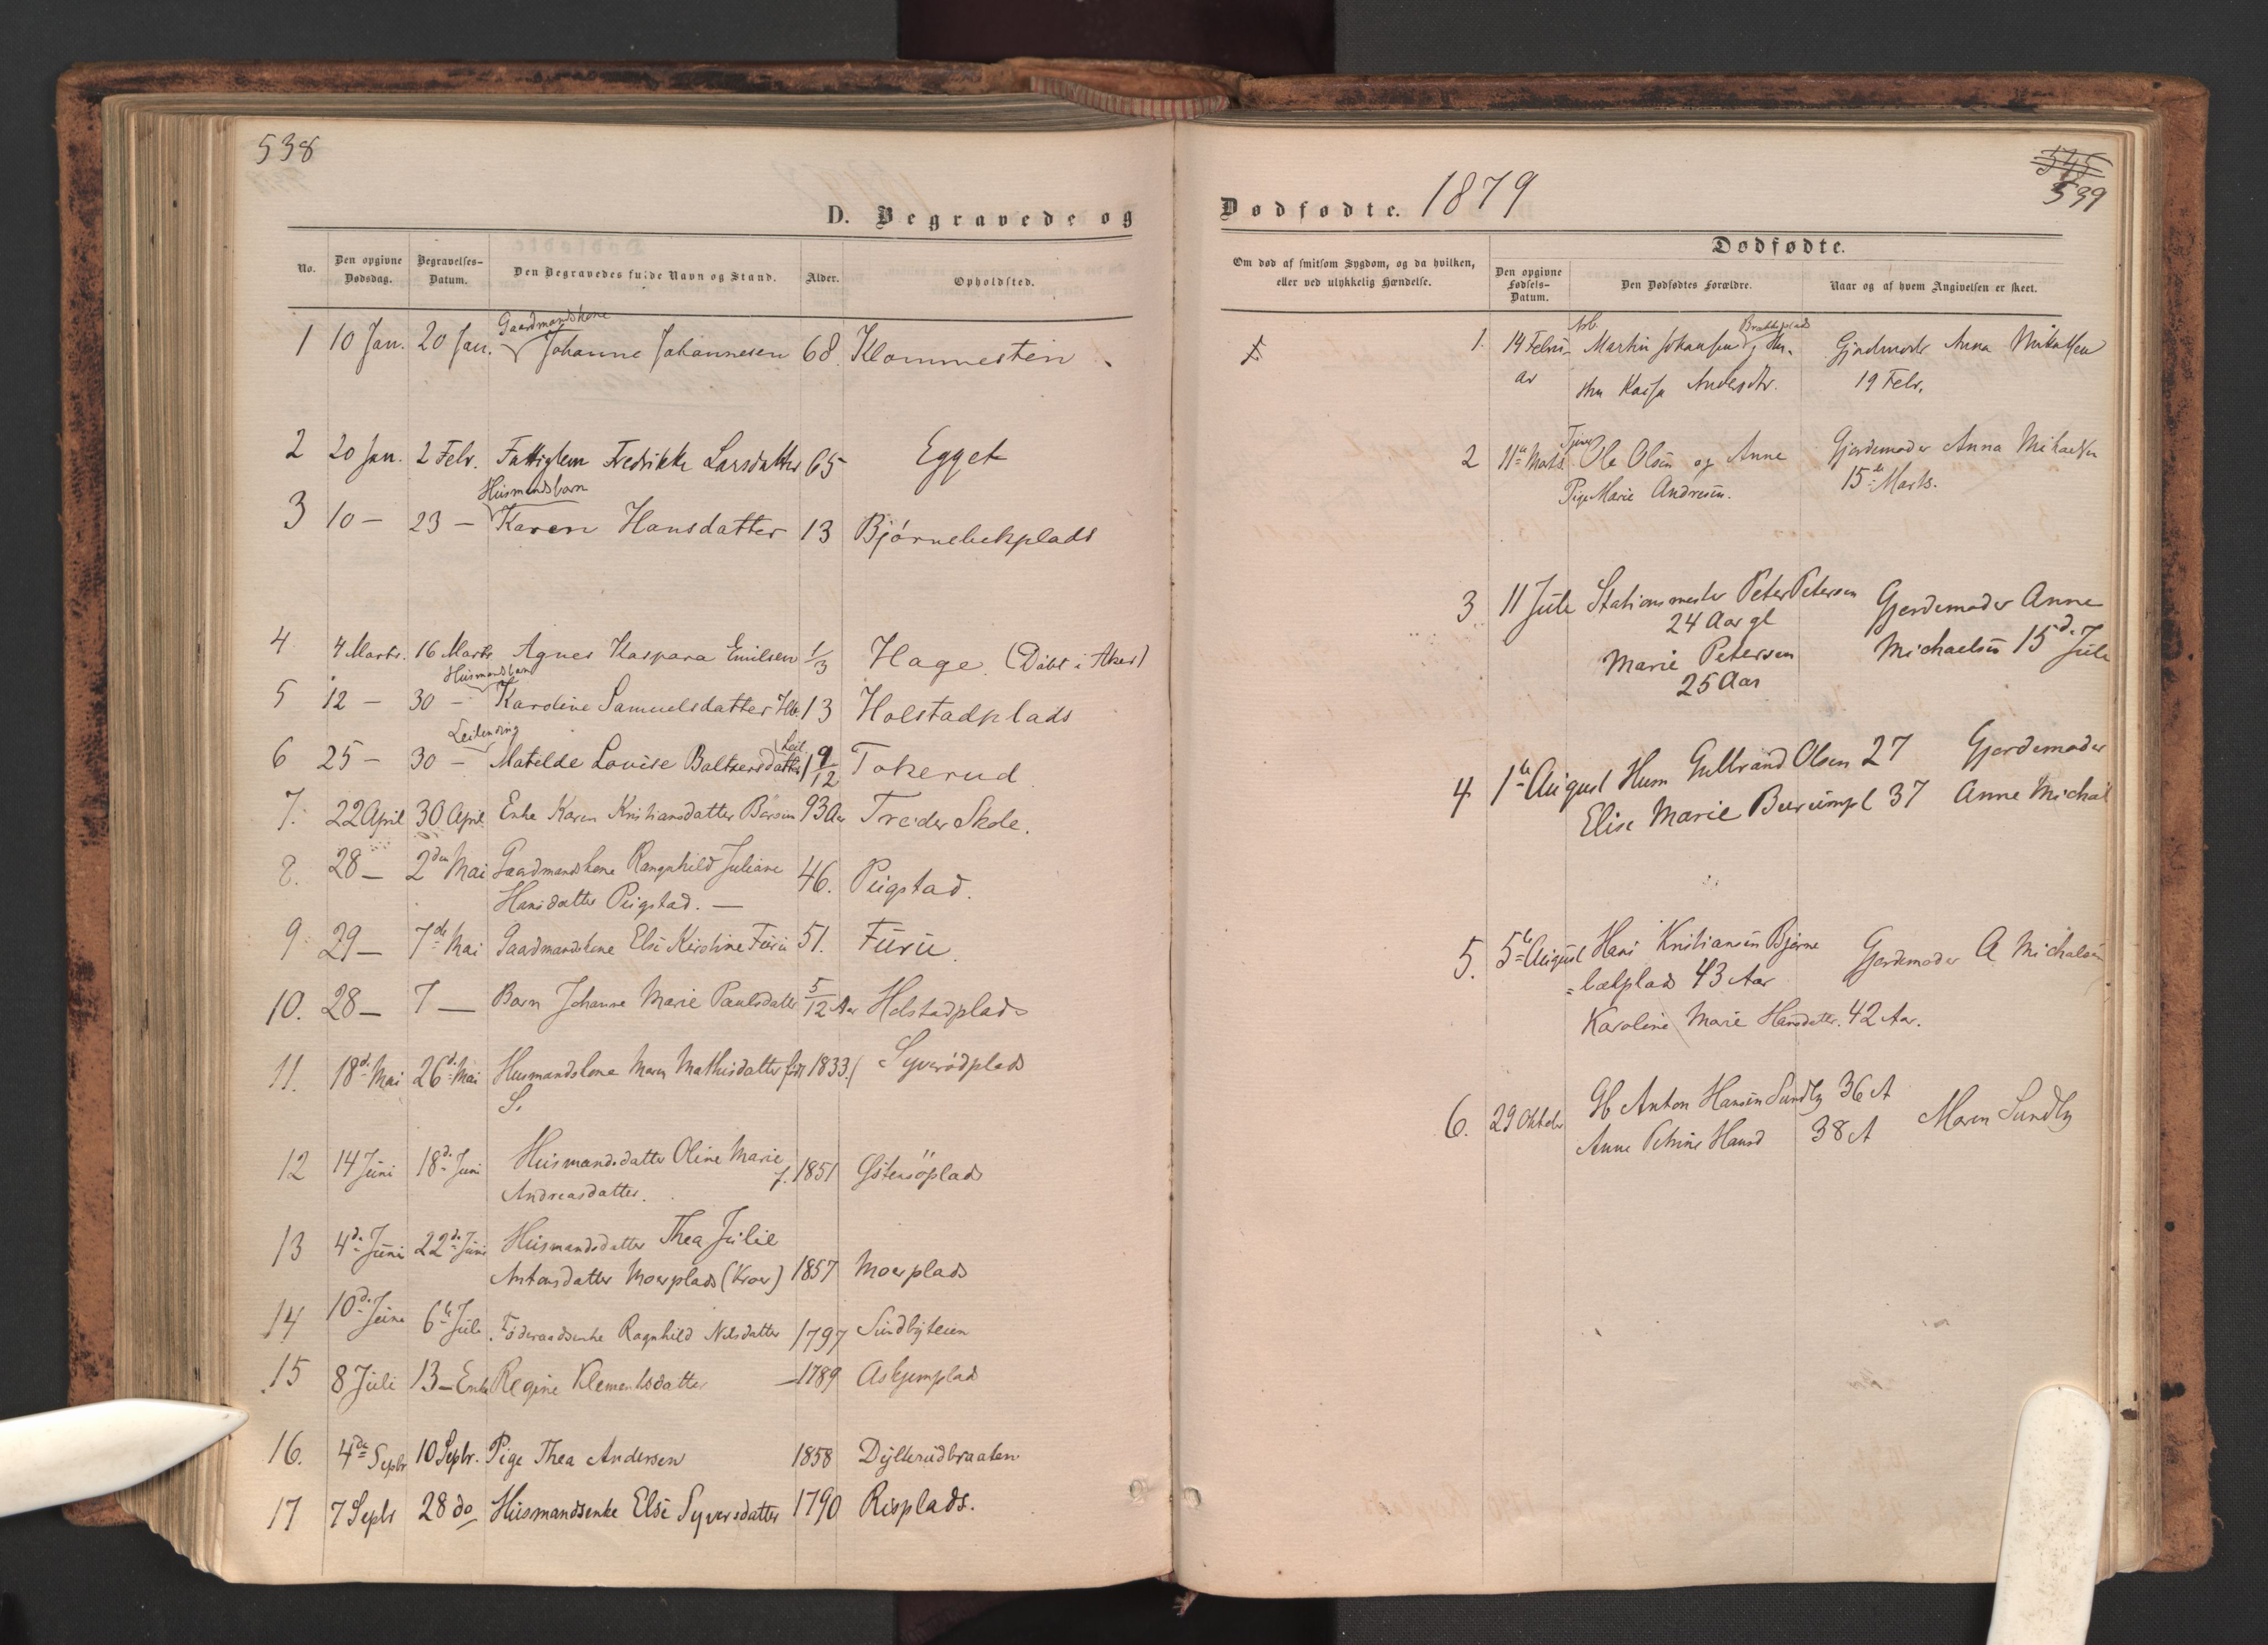 538
D. Begravede og
No. Den opgivne Dødsdag. Begravelses-Datum. Den Begravedes fulde Navn og Stand. Alder. Opholdsted.
Gaardmandskone
1 10 Jan. 20 Jan. Johanne Johannesen 68. Klommesten
2 20 Jan. 2 Febr. Fattiglem Fredrikke Larsdatter 65 Egget
Husmandsbarn
3 10 — 23 — Karen Hansdatter 13 Bjørnebekplads
4 4 Marts. 16 Marts Agnes Kaspara Emilsen 1/3 Hage (Døbt i Aker)
Husmandsbarn
5 12 — 30 — Karoline Samuelsdatter 13 Holstadplads
Leilending
6 25 — 30 — Matelde Lovise Baltzersdatter 1 9/12 Tokerud
7. 22 April 30 April Enke Karen Kristiansdatter 93 Aar Treider Skole.
8. 28 — 2den Mai Gaardmandskone Rangnhild Juliane 46. Pugstad.
Hansdatter Pugstad. —
9 29 — 7de Mai Gaardmandskone Else Karoline Furu 51. Furu.
10. 28 — 7 — Barn Johanne Marie Paulsdatter 5/12 Aar Holstadplads
11. 18de Mai 26de Mai Husmandskone Maren Mathisdatter født 1833. Syverødplads
S.
12 14 Juni 18de Juni Husmandsdatter Oline Marie f. 1851 Østensøplads
Andreasdatter.
13 4de Juni 22de Juni Husmandsdatter Thea Julie
Antonsdatter Moerplads (Kroer) 1857 Moerplads
14 10de Juni 6te Juli Føderaadsenke Ragnhild Nilsdatter 1797 Sundbyteien
15 8 Juli 13 — Enke Regine Klementsdatter — 1789 Askjumplads
16. 4de Septbr 10 Septbr. Pige Thea Andersen 1858 Dylterudbraaten
17 7 Septr 28 do Husmandsenke Else Syversdatter 1790 Risplads.
545
539
Dødfødte. 1879
Om død af smitsom Sygdom, og da hvilken, eller ved ulykkelig Hændelse.
Dødfødte.
Den opgivne Fødsels-Datum. Den Dødfødtes Forældre. Naar og af hvem Angivelsen er skeet.
Arb.
1. 14 Febru- Martin Johansen Gjordmoder Anna Mikalsen
ar Kaisa Andersdtr. 19 Febr.
2 11te Marts Tjener Ole Olsen og Anne Gjordemoder Anna Mikaelsen
Pige Marie Andresen. 15de Marts.
3 11 Jule Stationsmester Peter Petersen Gjordemoder Anne
24 Aar gl
Marie Petersen Michaelsen 15de Jule
25 Aar
4 1te August Husm Gulbrand Olsen 27 Gjordemoder
Elise Marie 37 Anne Michael
5. 5te August Hans Kristiansen Bjørne Gjordemoder A Michalsen
=bækplads 43 Aar
Karoline Marie Hansdatter. 42 Aar.
6. 29 Oktobr Gb Anton Hansen Sundby 36 A Maren Sundby
Anne Petrine Hansd 38 A